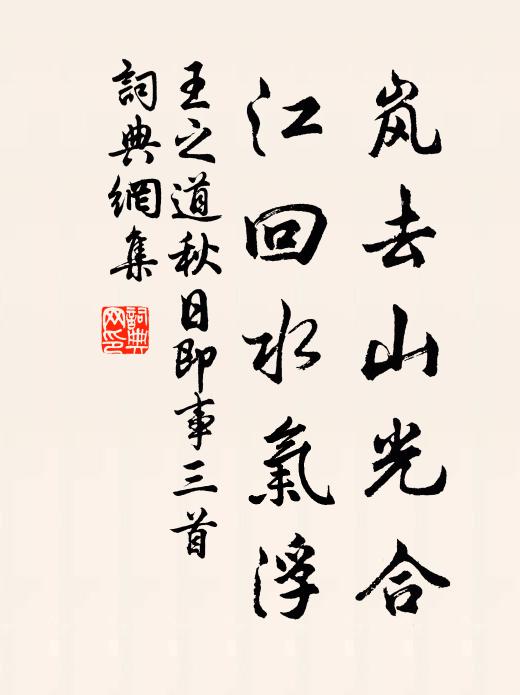 岚去山光合
江回水氣浮
王之道秋日即事三首
詞典網集
詞典网印